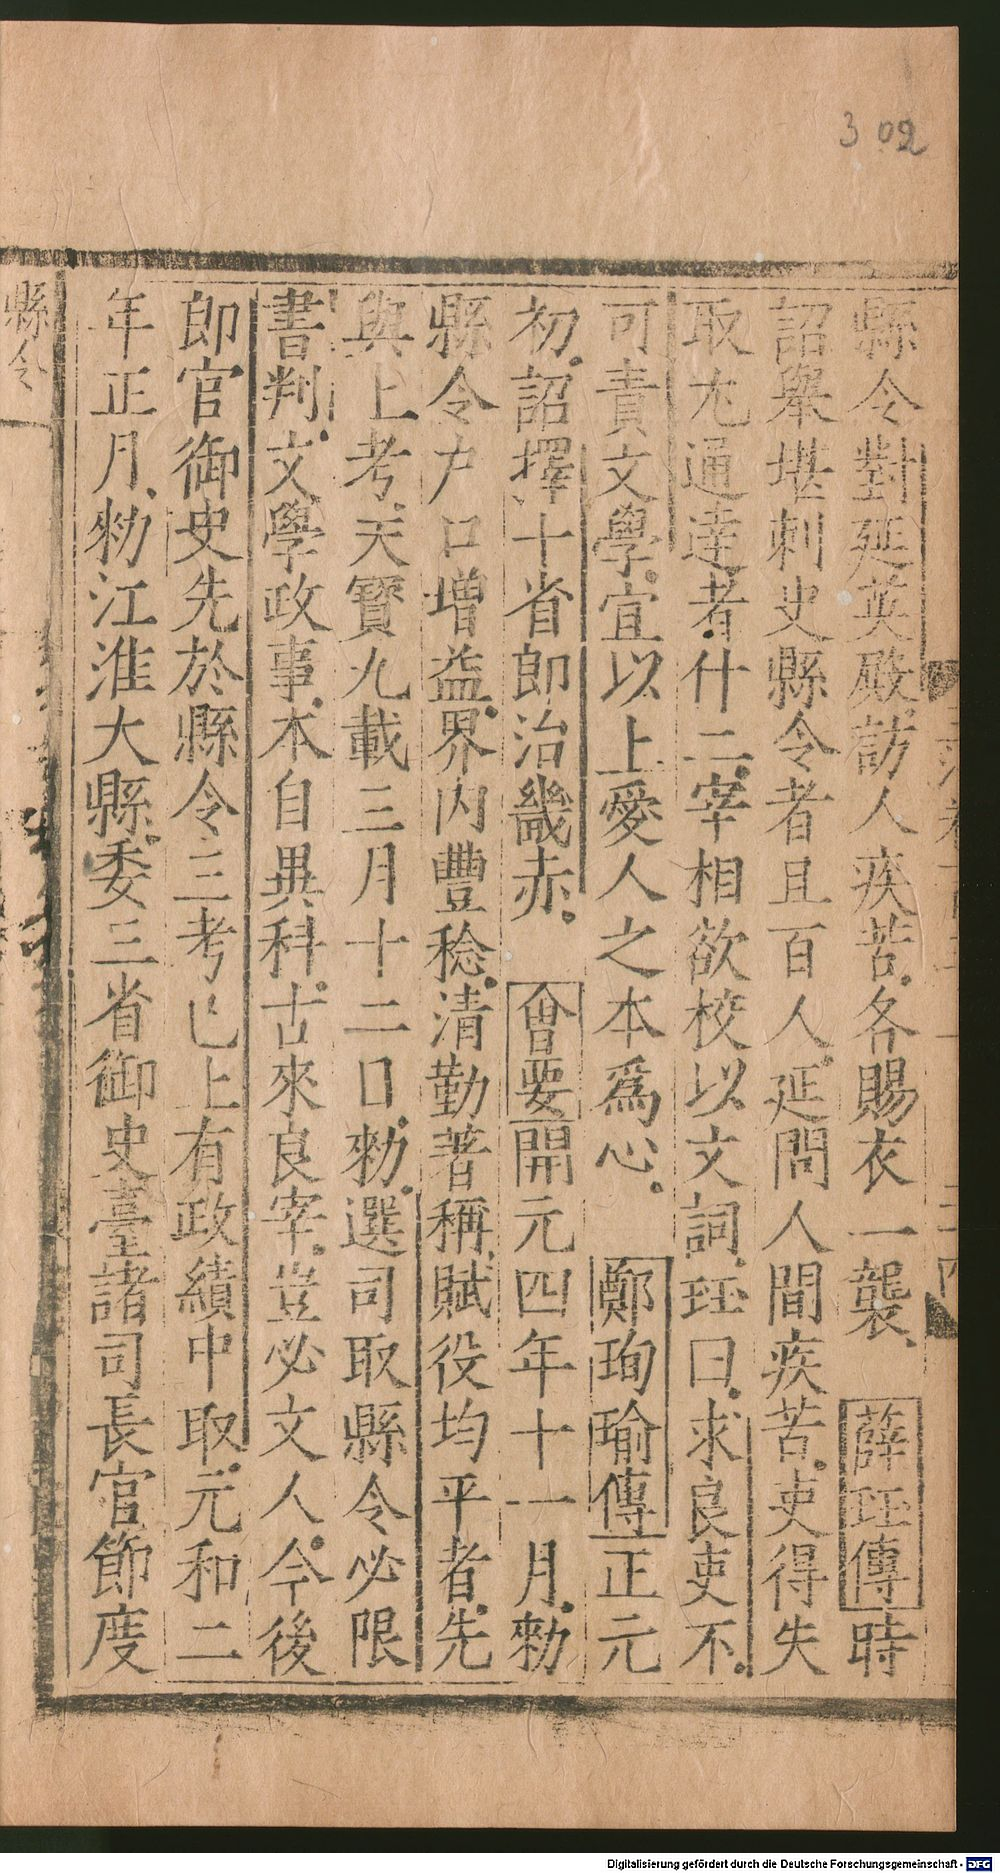 302
縣令對延英殿訪人疾苦各賜衣一襲薛珏傳時
詔舉堪刺史縣令者且百人延問人間疾苦吏得失
取尤通達者什二宰相欲校以文詞珏曰求良吏不
可責文學宜以上愛人之本爲心鄭珣瑜傳正元
初詔擇十省郎治畿赤會要開元四年十一月勑
縣令戶口增益界內豐稔清勤著稱賦役均平者先
與上考天寶九載三月十二日勑選司取縣令必限
書判文學政事本自異科古來良宰豈必文人今後
郎官御史先於縣令三考已上有政績中取元和二
年正月勑江淮大縣委三省御史臺諸司長官節度
縣令
Digitalisierung gefördert durch die Deutsche Forschungsgemeinschaft - DFG